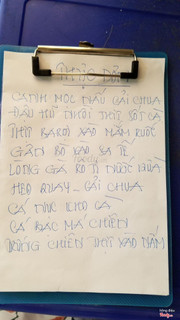 THỰC ĐƠN
CANH MỌC NẤU CẢI CHUA
ĐẬU HỦ NHỒI THỊT SỐT CÀ
THỊT BA RỌI XÀO MẮM RUỐC
GÂN BÒ XÀO SA TẾ
LÒNG GÀ RÔ TI NƯỚC DỪA
HEO QUAY - CẢI CHUA
CÁ NỤC KHO CÀ
CÁ BẠC MÁ CHIÊN
TRỨNG CHIÊN THỊT XÀO NẤM